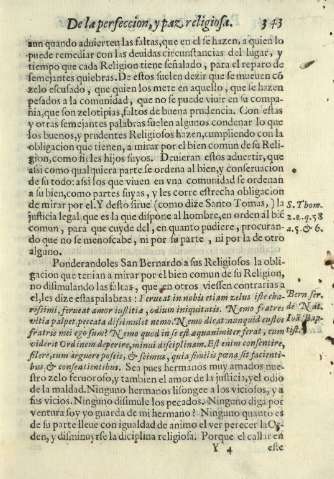 De la perfeccion, y paz religiosa. 343
aun quando aduierten las faltas, que en el se hazen, a quien lo
puede remediar con las deuidas circunstancias del lugar, y
tiempo que cada Religion tiene señalado, para el reparo de
semejantes quiebras. De estos suelen dezir que se mueuen cō
zelo escusado, que quien los mete en aquello, que se hazen
pesados a la comunidad, que no se puede viuir en su compa
ñia, que son zelotipias, faltos de buena prudencia. Con estas
y otras semejantes palabras suelen algunos condenar lo que
los buenos, y prudentes Religiosos hazen, cumpliendo con la
obligacion que tienen, a mirar por el bien comun de su Reli-
gion, como fieles hijos suyos. Deuieran estos aduertir, que
assi como qualquiera parte se ordena al bien, y conseruacion
de su todo: assi los que viuen en vna comunidad se ordenan
a su bien, como partes suyas, y les corre estrecha obligacion
de mirar por el. Y desto sirue (como dize Santo Tomas,) la
justicia legal, que es la que dispone al hombre, en orden al biē
comun, para que cuyde del, en quanto pudiere, procuran-
do que no se menoscabe, ni por su parte, ni por la de otro
alguno.
S. Thom.
2. 2. q. 58
a. 5. & 6.
Ponderandoles San Bernardo a sus Religiosos la obli-
gacion que tenian a mirar por el bien comun de su Religion,
no dissimulando las faltas, que en otros viessen contrarias a
el, les dize estas palabras: Ferueat in nobis etiam zelus iste cha-
rissimi, ferueat amor iustitiæ, odium iniquitatis. Nemo fratres
vitia palpet peccata dissimulet nemo. Nemo dicat nunquid custos
fratris mei ego sum? Nemo quod in se est æquanimiter ferat, cum
viderit Ordinem deperire, minui disciplinam. Est enim consentire,
silere, cum arguere possis, & scimus, quia similis pœna sit facienti
bus, & consentientibus. Sea pues hermanos muy amados nue-
stro zelo feruoroso, y tambien el amor de la justicia, y el odio
de la maldad. Ninguno hermanos lisonge a los viciosos, y a
sus vicios. Ninguno dissimule los pecados. Ninguno diga por
ventura soy yo guarda de mi hermano? Ninguno quanto es
de su parte lleue con igualdad de animo el ver perecer la Or-
den, y disminuyrse la diciplina religiosa. Porque el callar en
Bern ser.
Y 4 este